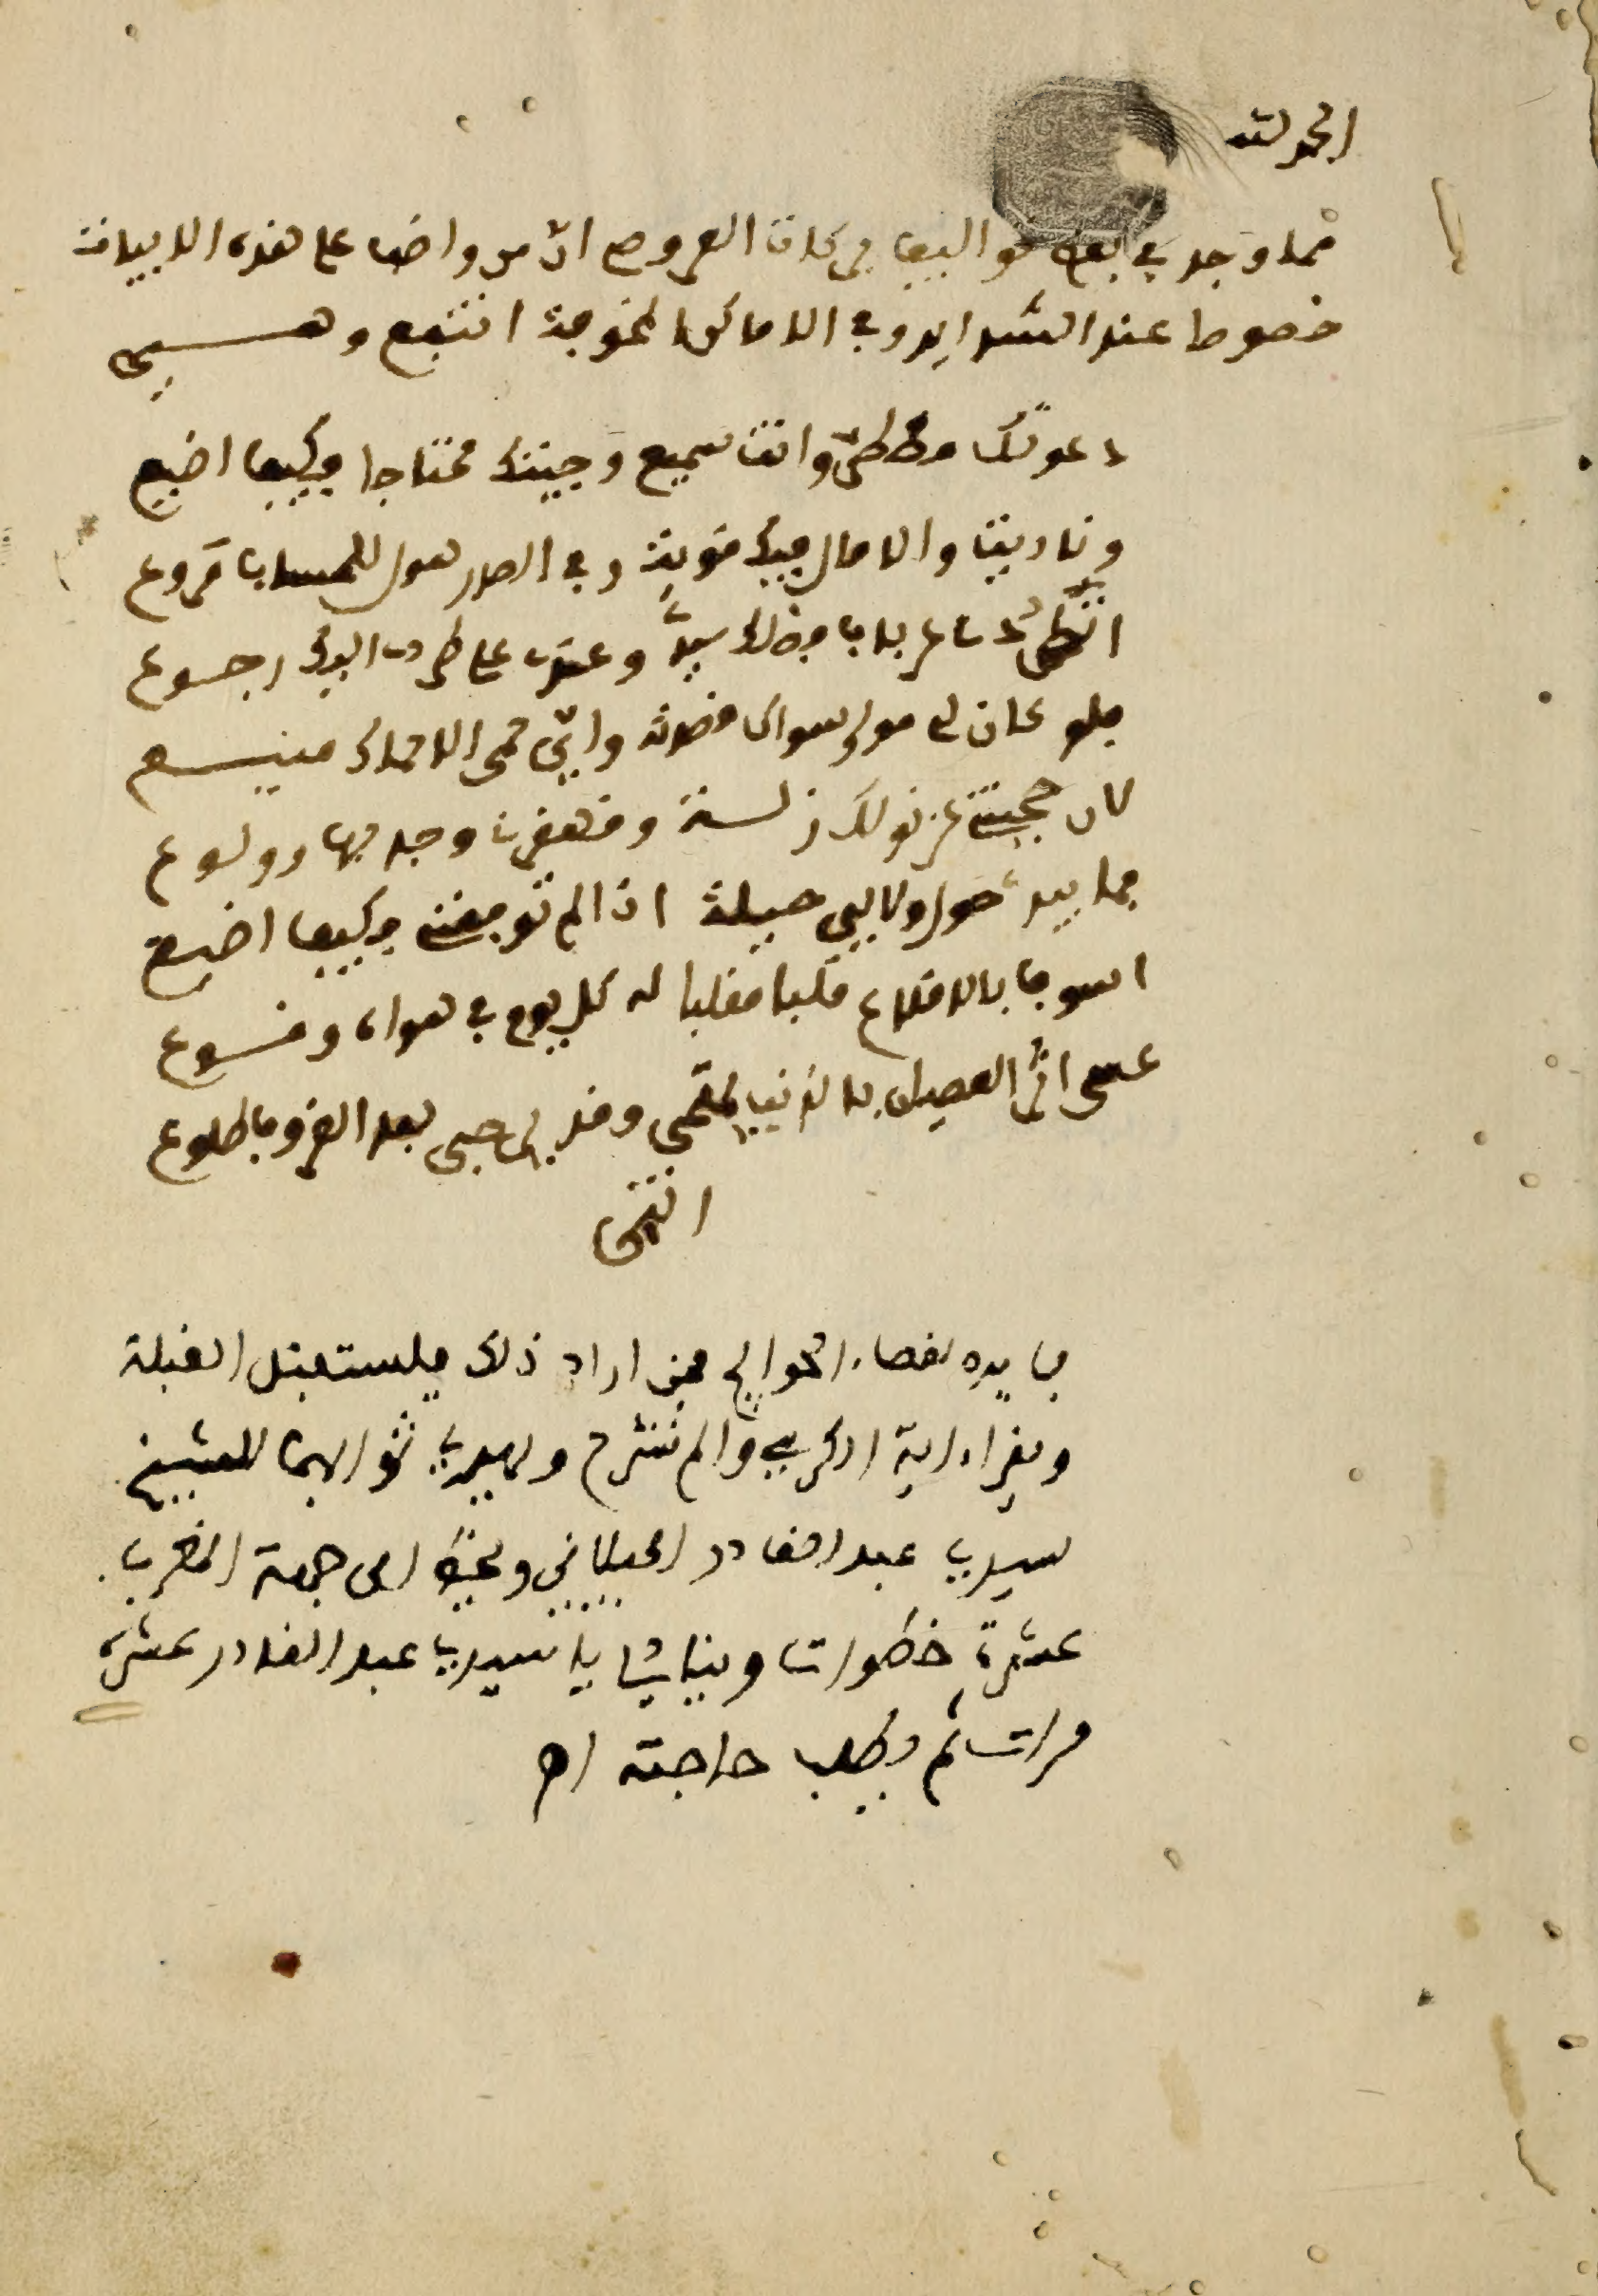 الحمد لله
مما وجد في بعض تواليف بركات العروسي ان من واضب على هذه الابيات
خصوصا عند الشدايد وفي الاماكن المخوفة انتفع وهــي
دعوتك مضطرا وانت سميع وجيتك محتاجا فكيف اضيع
وناديت والامال فيك قوية وفي الصدر هول للحساب قروع
اتطردني عن باب فضلك سيدي وعندي على طردي اليك رجوع
فلو كان لي مولى سواك قصدته واني حمى الاحماك منيـع
لان حجبتني عن نولك زلــة وقهقرت وجد بها وولوع
فما بيدي حول ولا لي حيلة اذا لم توفقني فكيف اضيع
اسوف بالاقلاع قلبا مقلبا له كل يوم في هواه وقــوع
عسى اثر العصيان بالذنب يمتحي وقد لي حبي بعد الغروب طلوع
انتهى
فايدة لقضاء الحوايج فمن اراد ذلك فليستقبل القبلة
ويقرا ءاية الكرسي والم نشرح ويهدي ثوابهما للشيخ
سيدي عبد القادر الجيلاني ويخط الى جهة المغرب
عشرة خطوات وينادي يا سيدي عبد القادر عشرة
مرات ثم يطلب حاجته اه